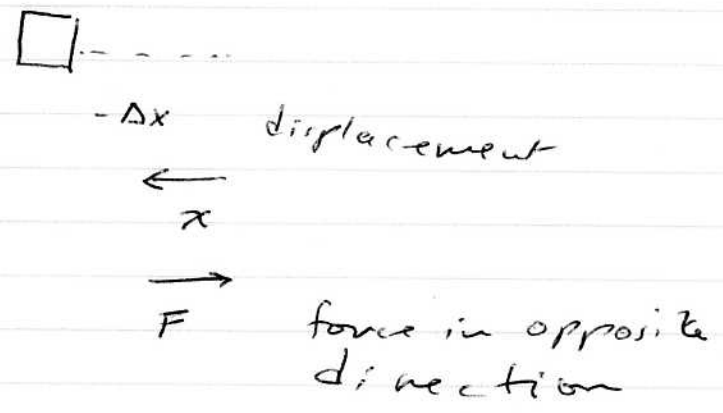 -Δx displacement
x
F force in opposite
direction